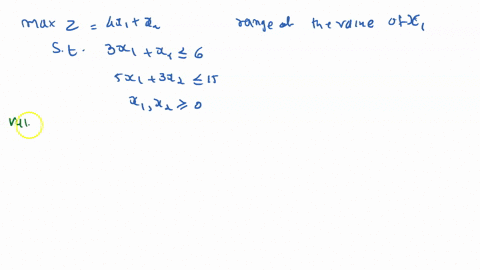 max Z = 4x₁ + x₂ range of the value of x₁
S.t. 3x₁ + x₂ ≤ 6
5x₁ + 3x₂ ≤ 15
x₁, x₂ ≥ 0